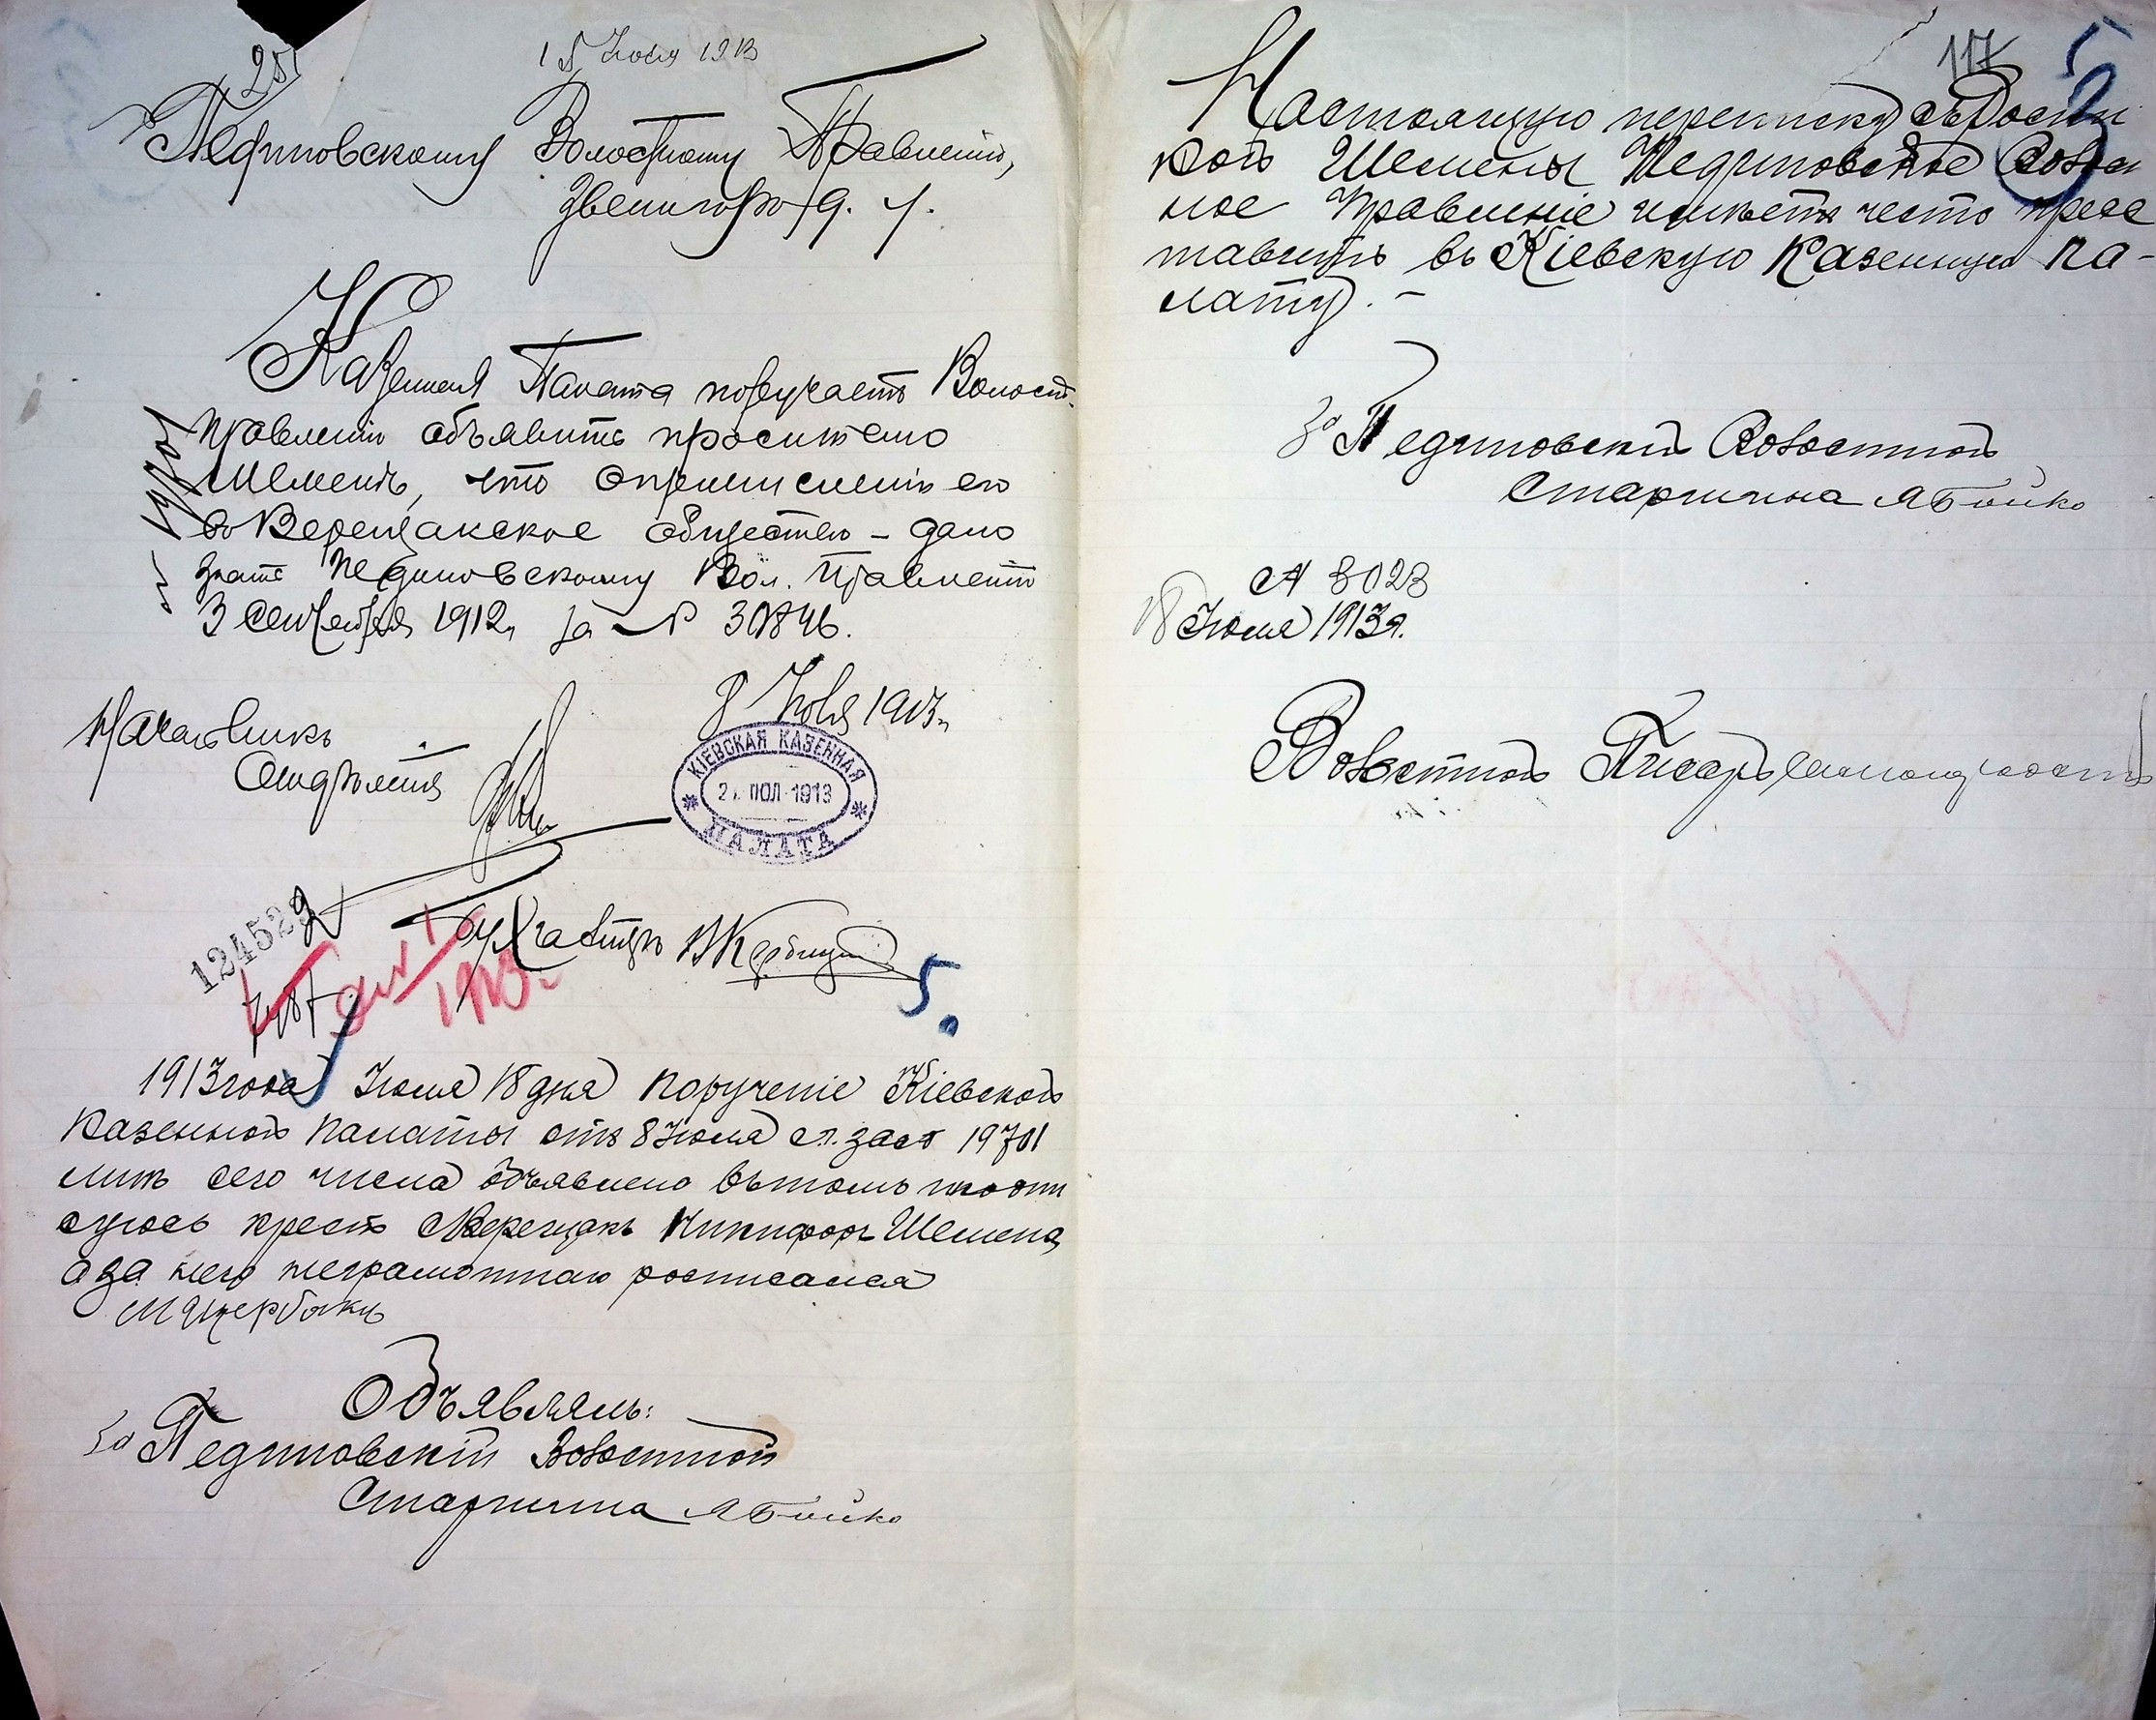 25
15 Июля 1913
Пединовскому Волостному Правленію,
Звенигород. у.
Казенная Палата поручаетъ Волост.
Правленію объявить просителю
Шемень, что о причисленіи его
въ Верещакское общество – дано
знать Пединовскому Вол. Правленію
3 сентября 1912 г. за № 30846.
№ 19701
8 Июля 1913 г.
Начальникъ
Отдѣленія
КІЕВСКАЯ КАЗЕННАЯ
21 ІЮЛ 1913
ПАЛАТА
124529
Бухгалтеръ
1913
5.
1913 года Іюля 18 дня порученіе Кіевской
Казенной Палаты отъ 8 Іюля с.г. за № 19701
мнѣ сего числа объявлено въ томъ подпи
суюсь крест. с. Верещакъ Никифоръ Шемень
а за него неграмотнаго росписался
М Щербакъ
Объявлялъ:
За Пединовскій Волостной
Старшина Я Бойко
117
5
2
Настоящую переписку съ роспис
кой Шемены Пединовское Волост
ное Правленіе имѣетъ честь предс
тавить въ Кіевскую Казенную Па-
лату. –
За Пединовскій Волостной
Старшина Я Бойко
№ 3023
18 Іюля 1913 г.
Волостной Писарь